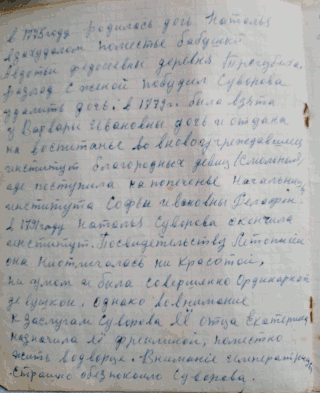 в 1775 году родилась дочь Наталья
в захудалом поместье бабушки
Авдотьи Федосеевны деревня
Развод с женой побудил Суворова
удалить дочь. в 1779 г. была взята
у Варвары Ивановны дочь и отдана
на воспитанье во вновоучрежденный
институт благородных девиц (Смольный)
где поступила на попеченье начальницы
института Софьи Ивановны Делафон
в 1791 году Наталья Суворова окончила
институт. По свидетельству
она ни отличалась ни красотой,
ни умом и была совершенно Ординарной
девушкой, однако во внимание
к заслугам Суворова Её отца Екатерина
назначила Её фрейлиной,
жить во дворце. Внимание императрицы
страшно обезпокоило Суворова.